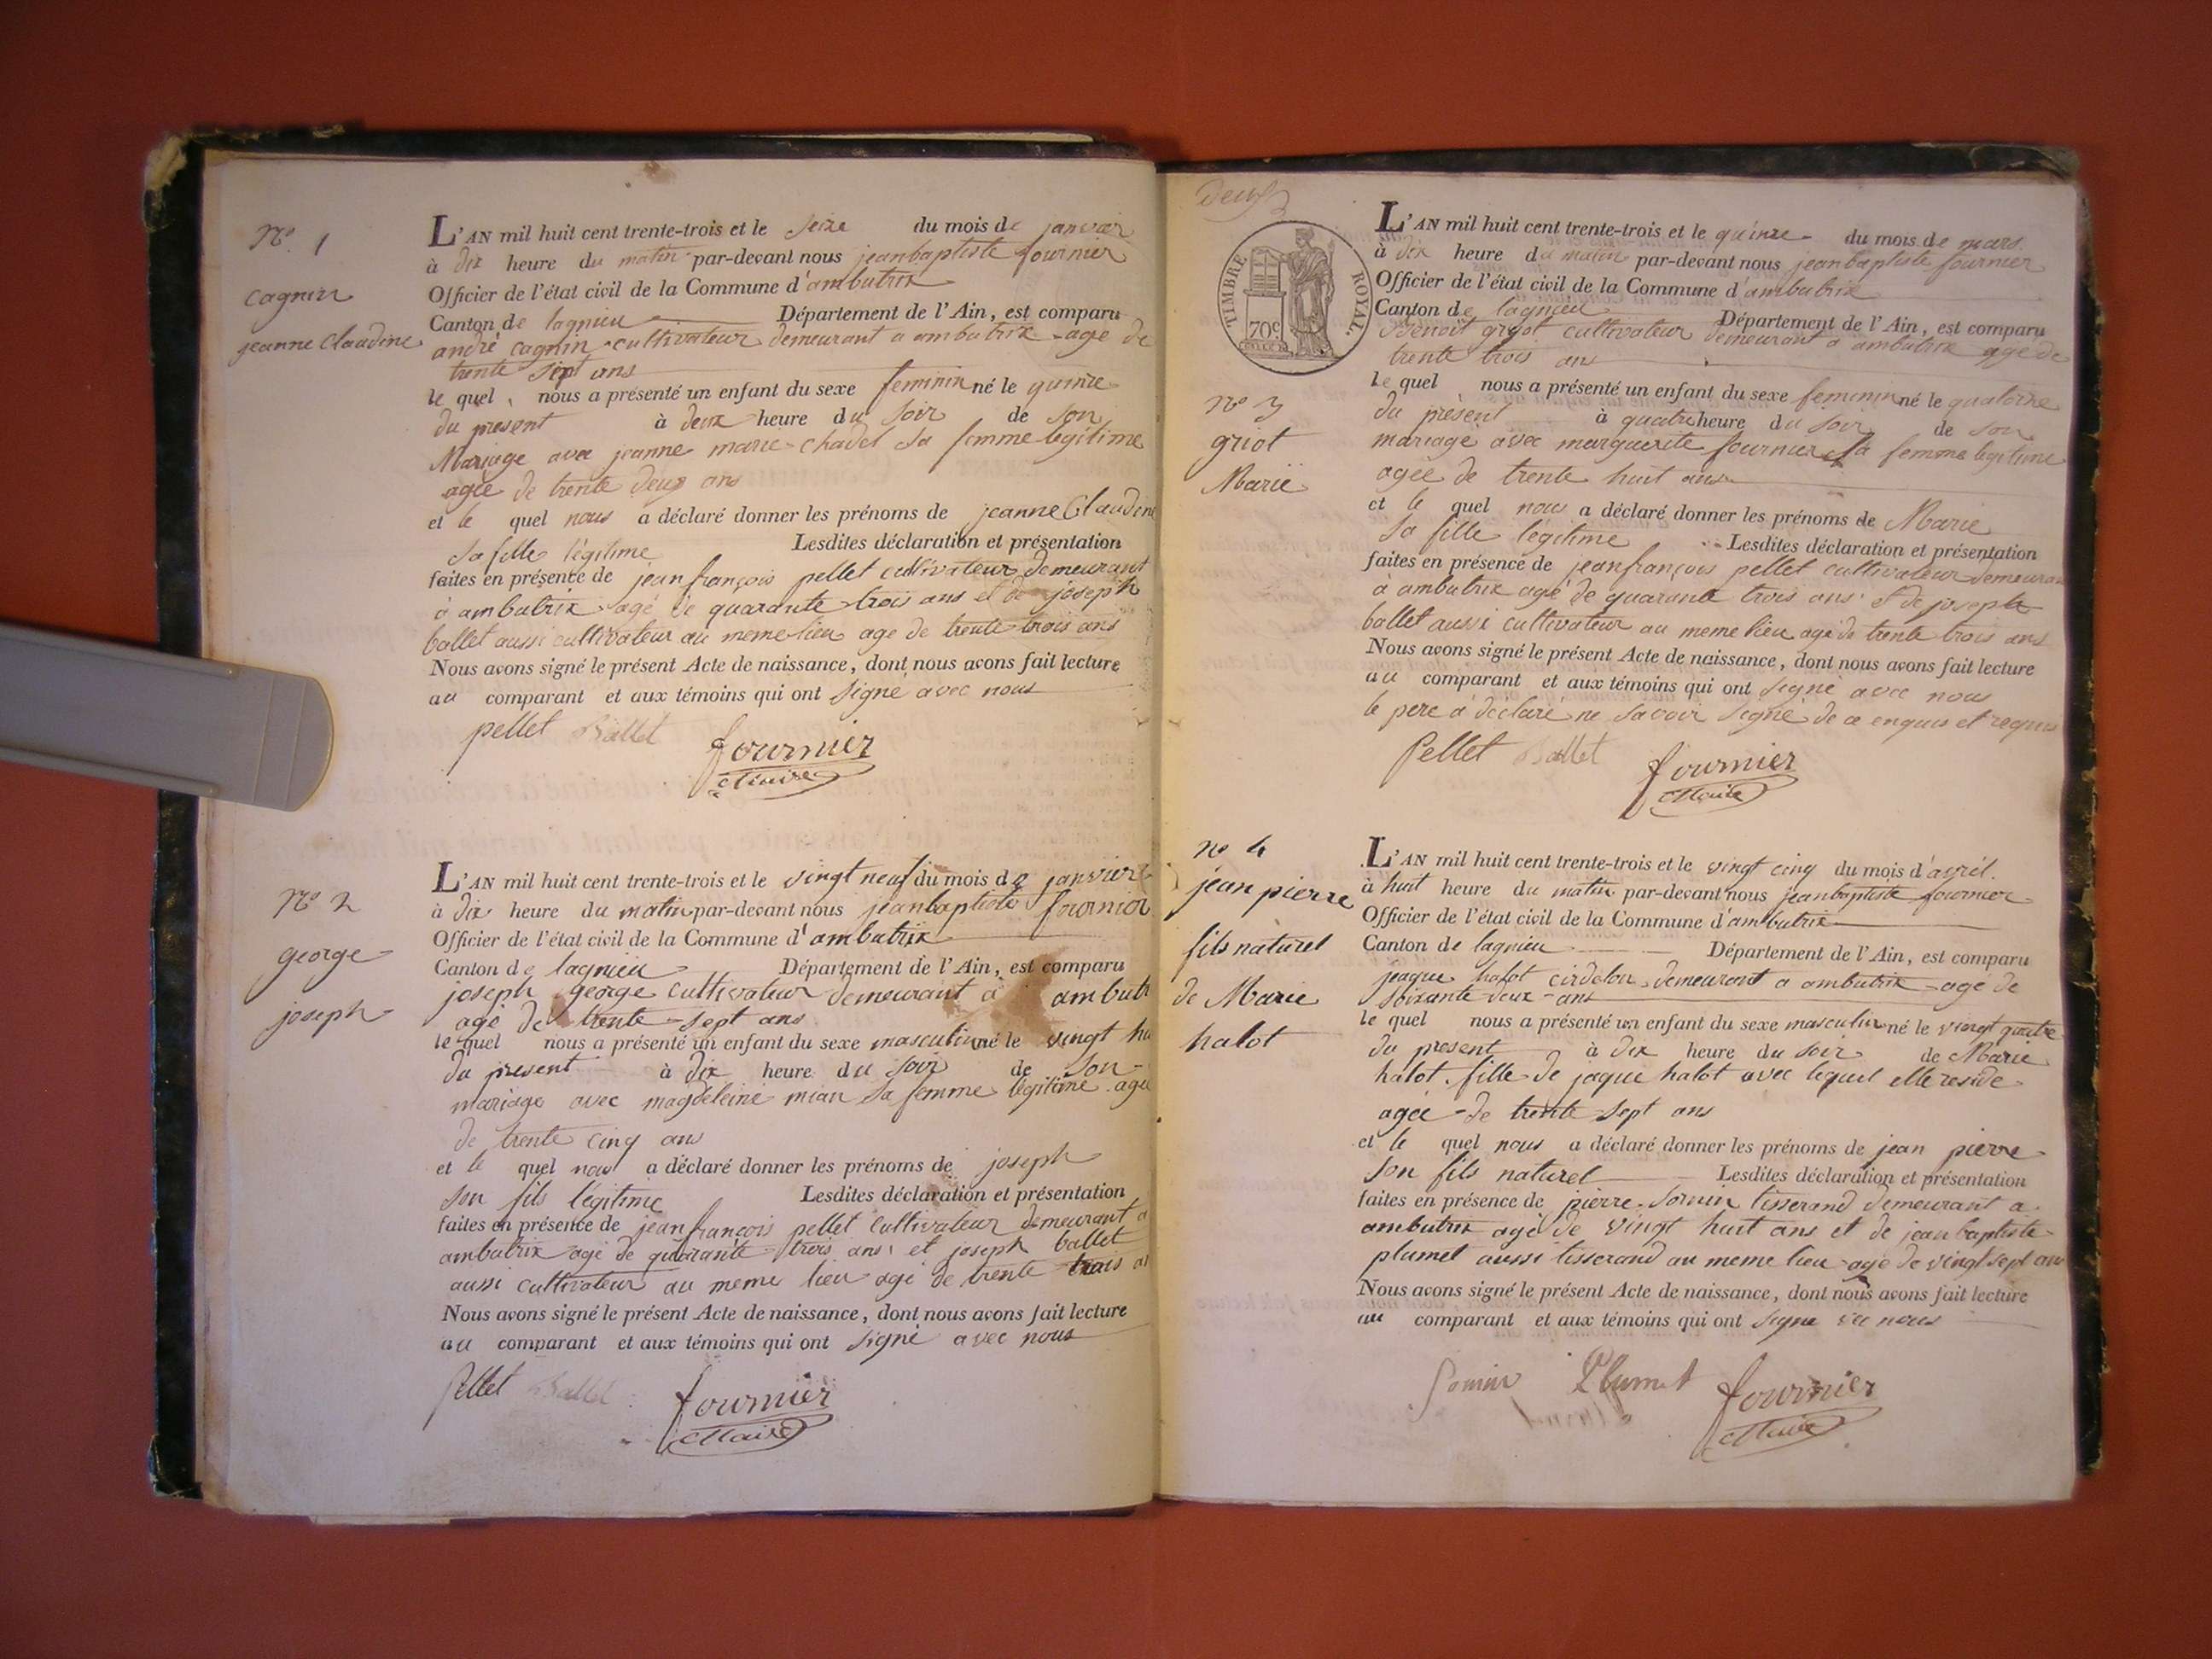 N° 1
cagnin
jeanne Claudine
L'AN mil huit cent trente-trois et le seize du mois de janvier
à dix heure du matin par-devant nous jeanbaptiste fournier
Officier de l'état civil de la Commune d'ambutrix
Canton de lagnieu Département de l'Ain, est comparu
andré cagnin cultivateur demeurant a ambutrix agé de
trente sept ans
le quel nous a présenté un enfant du sexe feminin né le quinze
du present à deux heure du soir de son
Mariage avec jeanne marie chadel sa femme legitime
agée de trente deux ans
et le quel nous a déclaré donner les prénoms de jeanne Claudine
sa fille légitime Lesdites déclaration et présentation
faites en présence de jean françois pellet cultivateur demeurant
à ambutrix agé de quarante trois ans et de joseph
ballet aussi cultivateur au meme lieu age de trente trois ans
Nous avons signé le présent Acte de naissance, dont nous avons fait lecture
au comparant et aux témoins qui ont signé avec nous
pellet Ballet fournier
Maire
N° 2
george
joseph
L'AN mil huit cent trente-trois et le vingt neuf du mois de janvier
à dix heure du matin par-devant nous jeanbaptiste fournier
Officier de l'état civil de la Commune d'ambutrix
Canton de lagnieu Département de l'Ain, est comparu
joseph george cultivateur demeurant à ambutr
agé de trente sept ans
le quel nous a présenté un enfant du sexe masculin né le vingt hu
du present à dix heure du soir de son
mariage avec magdeleine mian sa femme légitime agée
de trente cinq ans
et le quel nous a déclaré donner les prénoms de joseph
son fils légitime Lesdites déclaration et présentation
faites en présence de jean françois pellet cultivateur demeurant a
ambutrix agé de quarante trois ans et joseph ballet
aussi cultivateur au meme lieu agé de trente trois a
Nous avons signé le présent Acte de naissance, dont nous avons fait lecture
au comparant et aux témoins qui ont signé avec nous
Pellet Ballet fournier
Maire
deux
TIMBRE ROYAL.
70c
N° 3
griot
Marie
L'AN mil huit cent trente-trois et le quinze du mois de mars
à dix heure du matin par-devant nous jeanbaptiste fournier
Officier de l'état civil de la Commune d'ambutrix
Canton de lagnieu Département de l'Ain, est comparu
Benoit griot cultivateur demeurant a ambutrix agé de
trente trois ans
le quel nous a présenté un enfant du sexe feminin né le quatorze
du présent à quatre heure du soir de son
mariage avec marguerite fournier sa femme legitime
agée de trente huit ans
et le quel nous a déclaré donner les prénoms de Marie
sa fille légitime Lesdites déclaration et présentation
faites en présence de jeanfrançois pellet cultivateur demeuran
à ambutrix agé de quarante trois ans et de joseph
ballet aussi cultivateur au meme lieu agé de trente trois ans
Nous avons signé le présent Acte de naissance, dont nous avons fait lecture
au comparant et aux témoins qui ont signé avec nous
le pere a déclaré ne savoir signé de ce enquis et requis
Pellet Ballet fournier
Maire
n° 4
jean pierre
fils naturel
de Marie
halot
L'AN mil huit cent trente-trois et le vingt cinq du mois d'avril.
à huit heure du matin par-devant nous jeanbaptiste fournier
Officier de l'état civil de la Commune d'ambutrix
Canton de lagnieu Département de l'Ain, est comparu
jaque halot demeurant a ambutrix agé de
soixante deux ans
le quel nous a présenté un enfant du sexe masculin né le vingt quatre
du present à dix heure du soir de Marie
halot fille de jaque halot avec lequel elle reside
agée de trente sept ans
et le quel nous a déclaré donner les prénoms de jean pierre
son fils naturel Lesdites déclaration et présentation
faites en présence de pierre sornin tisserand demeurant a
ambutrix agé de vingt huit ans et de jean baptiste
plumet aussi tisserand au meme lieu agé de vingt sept ans
Nous avons signé le présent Acte de naissance, dont nous avons fait lecture
au comparant et aux témoins qui ont signé nous
Sornin Plumet fournier
Maire